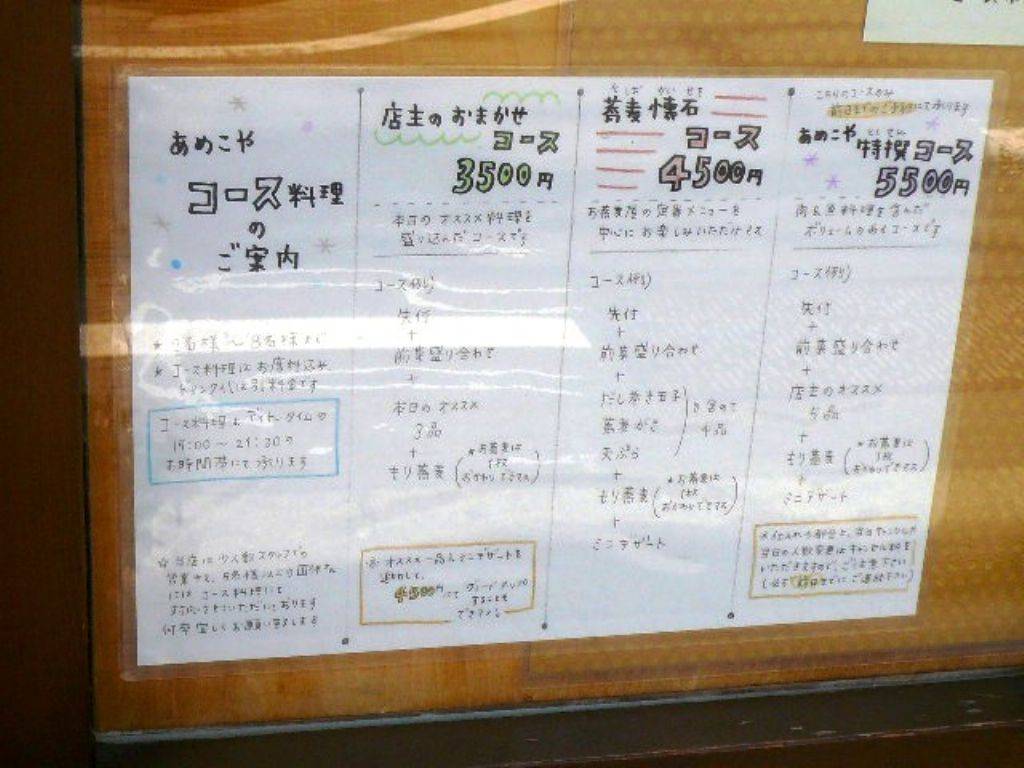 あめこや
コース料理
の
ご案内
★ 2名様〜8名様まで
★ コース料理はお席料込み
ドリンク代は別料金です
コース料理はディナータイムの
の
お時間帯にて承ります
☆ 当店は少人数スタッフでの
には コース料理にて
対応させていただいております
何卒宜しくお願い致します
店主のおまかせ
コース
3500円
本日のオススメ料理を
盛り込んだコースです
コース例)
先付
+
前菜盛り合わせ
+
本日のオススメ
3品
+
もり蕎麦 (★お蕎麦は
1枚
おかわりできます)
※オススメ一品とミニデザートを
追加して、
4500円にて グレードアップ
することも
できます。
蕎麦懐石
コース
4500円
お蕎麦屋の定番メニューを
中心にお楽しみいただけます
コース例)
先付
+
前菜盛り合わせ
+
だし巻き玉子
蕎麦がき
天ぷら
など含めて
4品
+
もり蕎麦 (★お蕎麦は
1枚
おかわりできます)
+
ミニデザート
こちらのコースのみ
前日までのご予約にて承ります
あめこや
特撰コース
5500円
肉&魚料理を含んだ
ボリュームのあるコースです
コース例)
先付
+
前菜盛り合わせ
+
店主のオススメ
5品
+
もり蕎麦 (★お蕎麦は
1枚
おかわりできます)
+
ミニデザート
当日の人数変更はキャンセル料を
いただきますので、ご注意下さい
(必ず前日までにご連絡下さい)